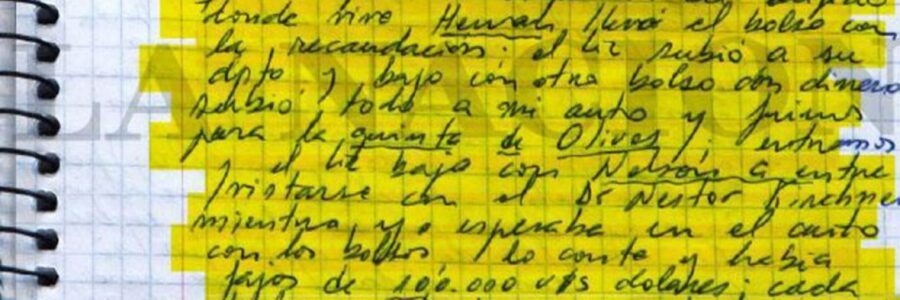 donde vive Hernan, llevó el bolso con
la recaudación. el Lic subió a su
dpto y bajo con otro bolso con dinero
subió todo a mi auto y fuimos
para la quinta de Olivos. entramos
y el Lic bajo con Nelson a entre
vistarse con el Dr Nestor Kirchner
mientra yo esperaba en el auto
con los bolsos, lo conte y habia
fajos de 100.000 U$S dolares; cada
LA NACION